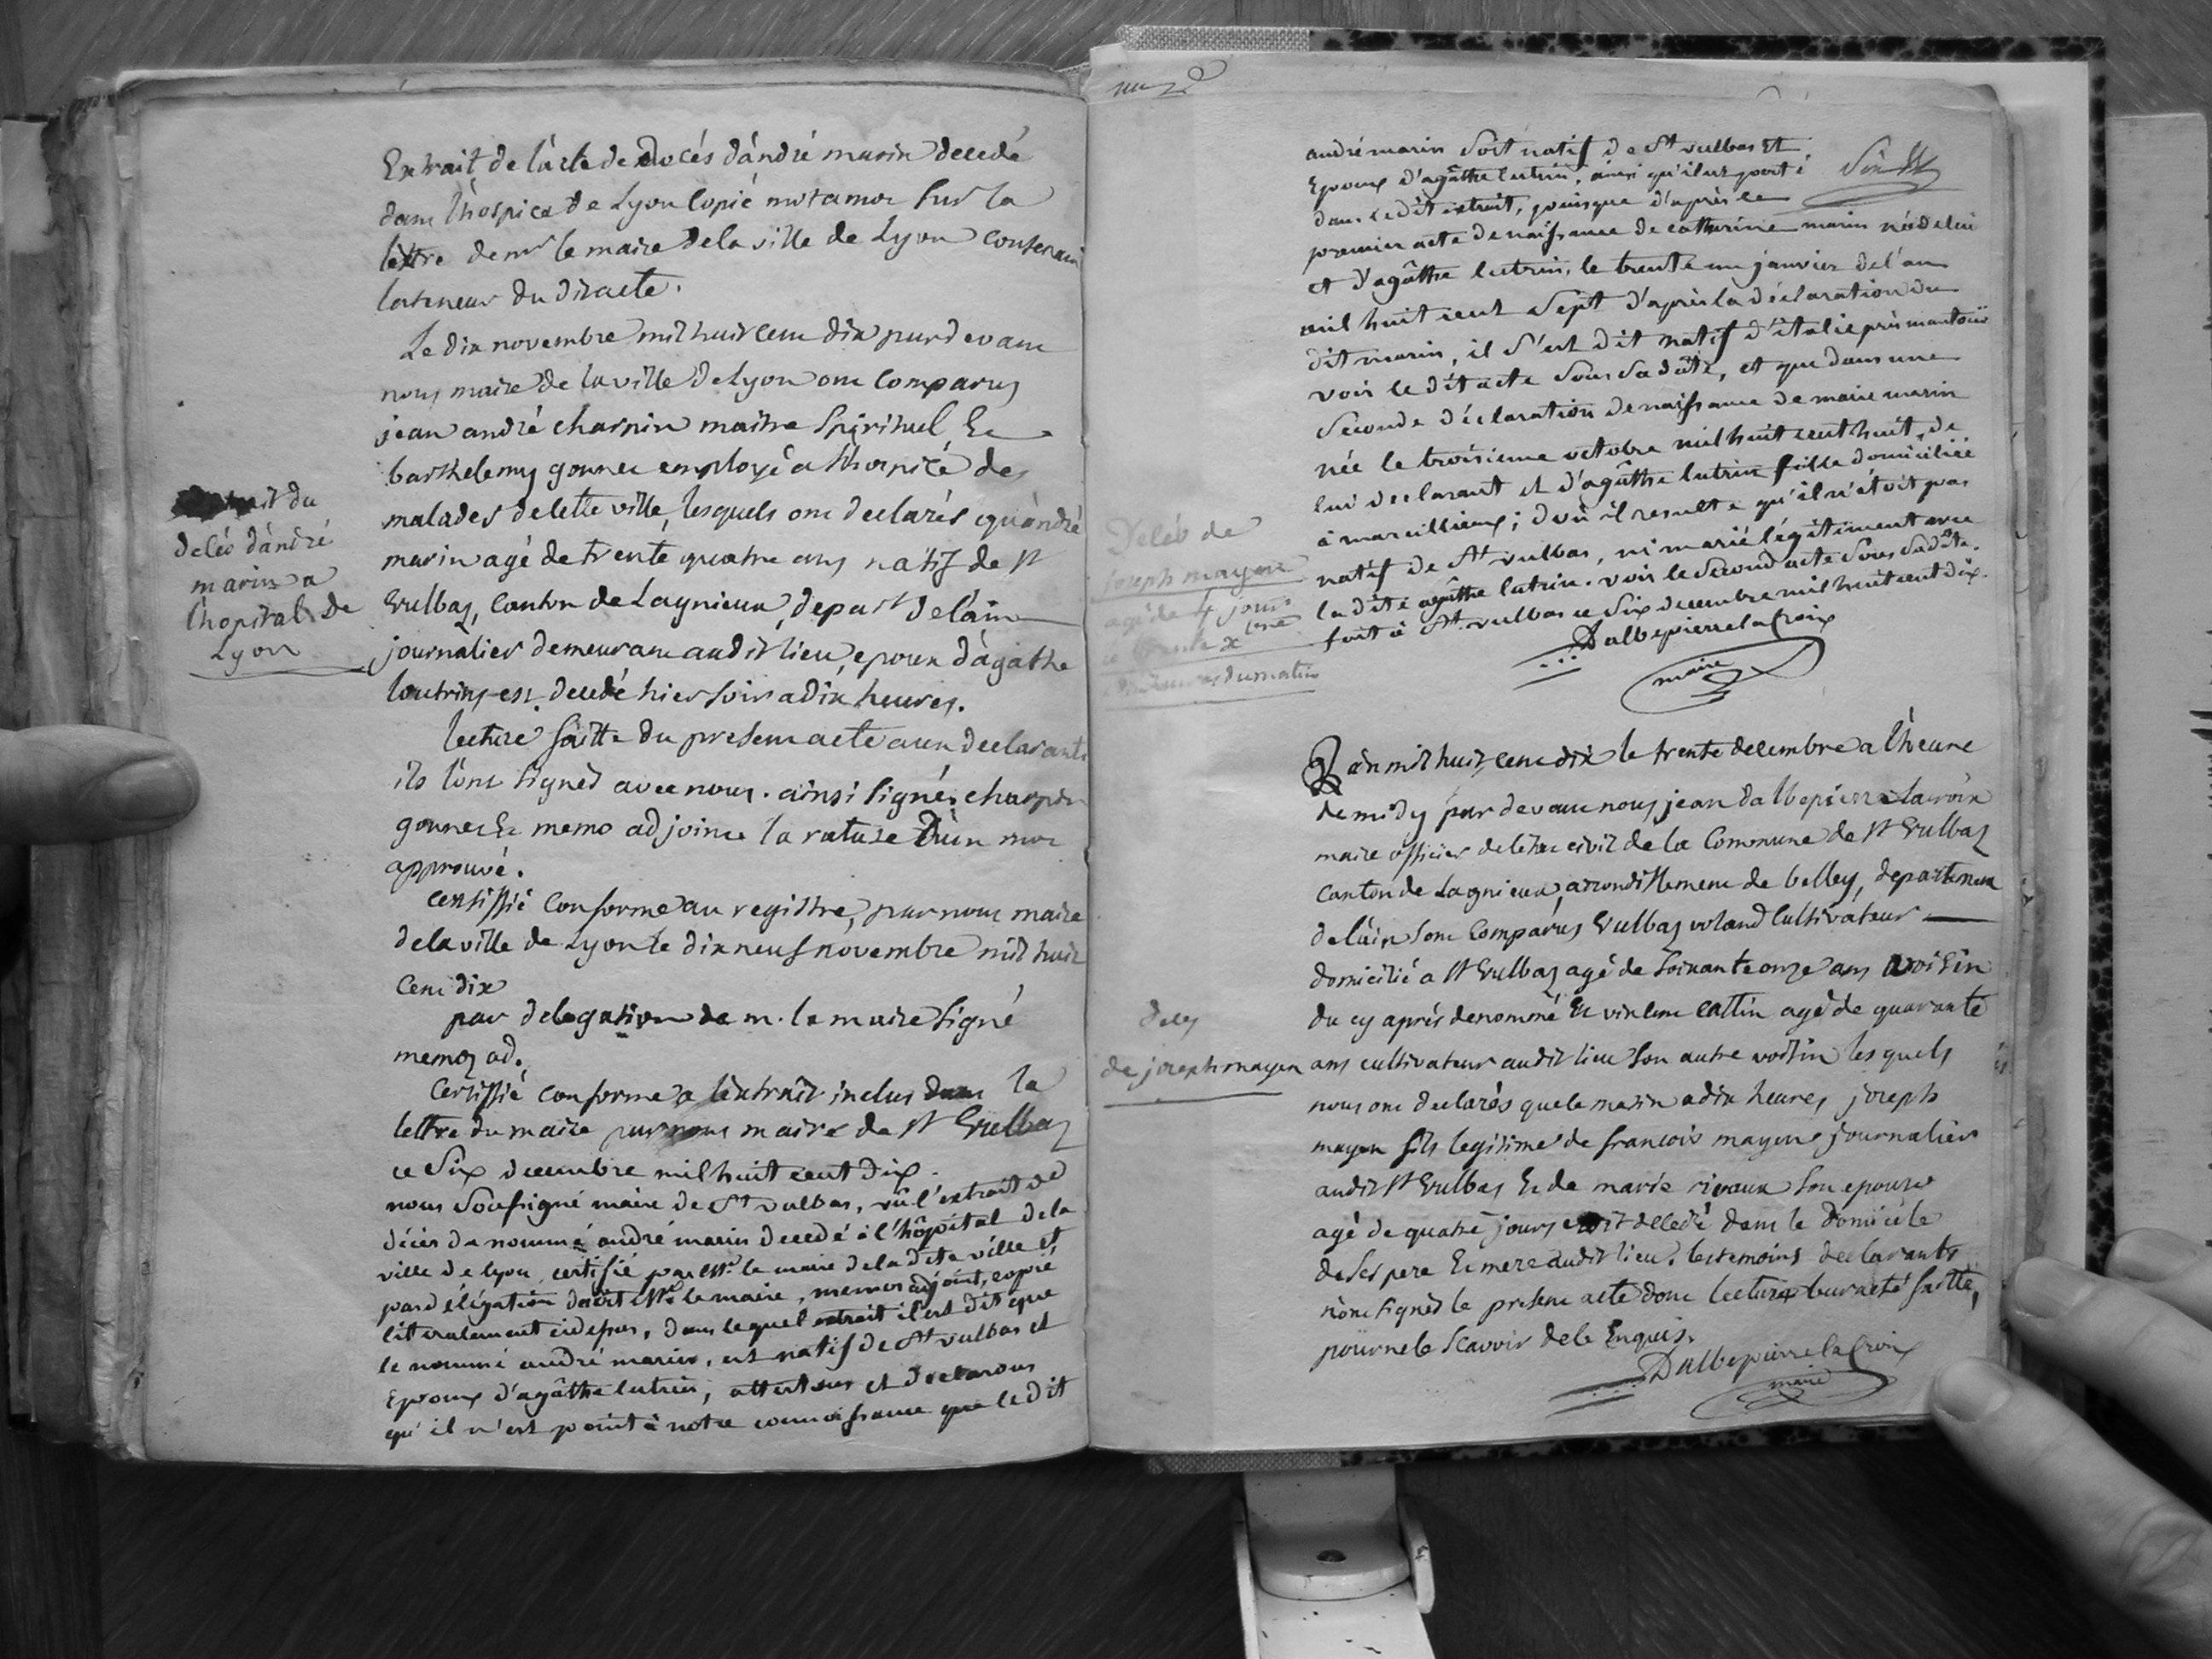 Extrait de l'acte de Décés d'andré marin decedé
dans l'hospice de Lyon copié mot a mot sur la
lettre de mr le maire de la ville de Lyon contenant
la teneur du dit acte.
Le dix novembre mil huit cent dix par devant
nous maire de la ville de Lyon ont comparus
jean andré charpin maitre spirituel, Et
barthelemy gonnet employé a l'hospice des
malades de cette ville, lesquels ont declarés qu'andré
marin agé de trente quatre ans natif de St
Vulbas, canton de Lagnieux, depart de l'ain
journalier demeurant audit lieu, epoux d'agathe
loutrin, est decedé hier soir a dix heures.
lecture faitte du present acte aux declarants
ils l'ont signés avec nous. ainsi signés, charpin
gonnet Et memo adjoint la rature d'un mot
approuvé.
certiffié conforme au registre, par nous maire
de la ville de Lyon le dix neuf novembre mil huit
cent dix
par delegation de m. le maire signé
memo ad.
Certiffié conforme a l'extrait inclus dans la
lettre du maire par nous maire de St Vulbas
ce Six decembre mil huit cent dix.
nous Soussigné maire de St vulbas, vû l'extrait de
décès du nommé andré marin decedé à l'hôpital de la
ville de lyon, certifié par Mr. le maire de la dite ville et
par délégation dudit Mr. le maire, memo adjoint, copié
literalement cidessus, dans lequel extrait il est dit que
le nommé andré marin, est natif de St vulbas et
Epoux d'agâthe lutrin, attestons et declarons
qu'il n'est point à notre connoissance que le dit
extrait du
décés d'andré
marin a
l'hopital de
Lyon
andré marin Soit natif de St vulbas Et
Epoux d'agâthe lutrin, ainsi qu'il est porté
dans le dit extrait, puisque d'après le
premier acte de naissance de catherine marin née de lui
et d'agâthe lutrin, le trente un janvier de l'an
mil huit cent Sept d'après la déclaration du
dit marin, il s'est dit natif d'italie près mantoüe
voir le dit acte Sous Sa date, et que dans une
Seconde déclaration de naissance de marie marin
née le troisieme octobre mil huit cent huit, de
lui declarant et d'agâthe lutrin fille domiciliée
à marcillieux; d'où il resulte qu'il n'étoit pas
natif de St vulbas, ni marié légitimement avec
la dite agâthe lutrin. voir le Second acte Sous Sa date.
fait à St. vulbas ce Six decembre mil huit cent dix.
Dalbepierre la Croix
maire
Décés de
joseph mayen
agé de 4 jours
du matin
L'an mil huit cent dix le trente decembre a l'heure
de midy par devant nous jean dalbepierre lacroix
maire officier de l'état civil de la Commune de St Vulbas
canton de Lagnieux, arrondissement de belley, departement
de l'ain sont comparus Vulbas voland cultivateur
domicilié a St Vulbas agé de soixante onze ans voisin
du cy aprés denommé Et vincent cattin agé de quarante
ans cultivateur audit lieu son autre voisin lesquels
nous ont declarés que le matin a dix heures, joseph
mayen fils legitime de francois mayen journalier
audit St Vulbas Et de marie rivaux son epouse
agé de quatre jours est decedé dans le domicile
de ses pere Et mere audit lieu. les temoins declarants
n'ont signés le present acte dont lecture leur a eté faitte,
pour ne le scavoir de ce Enquis.
Dalbepierre la Croix
maire
de joseph mayen